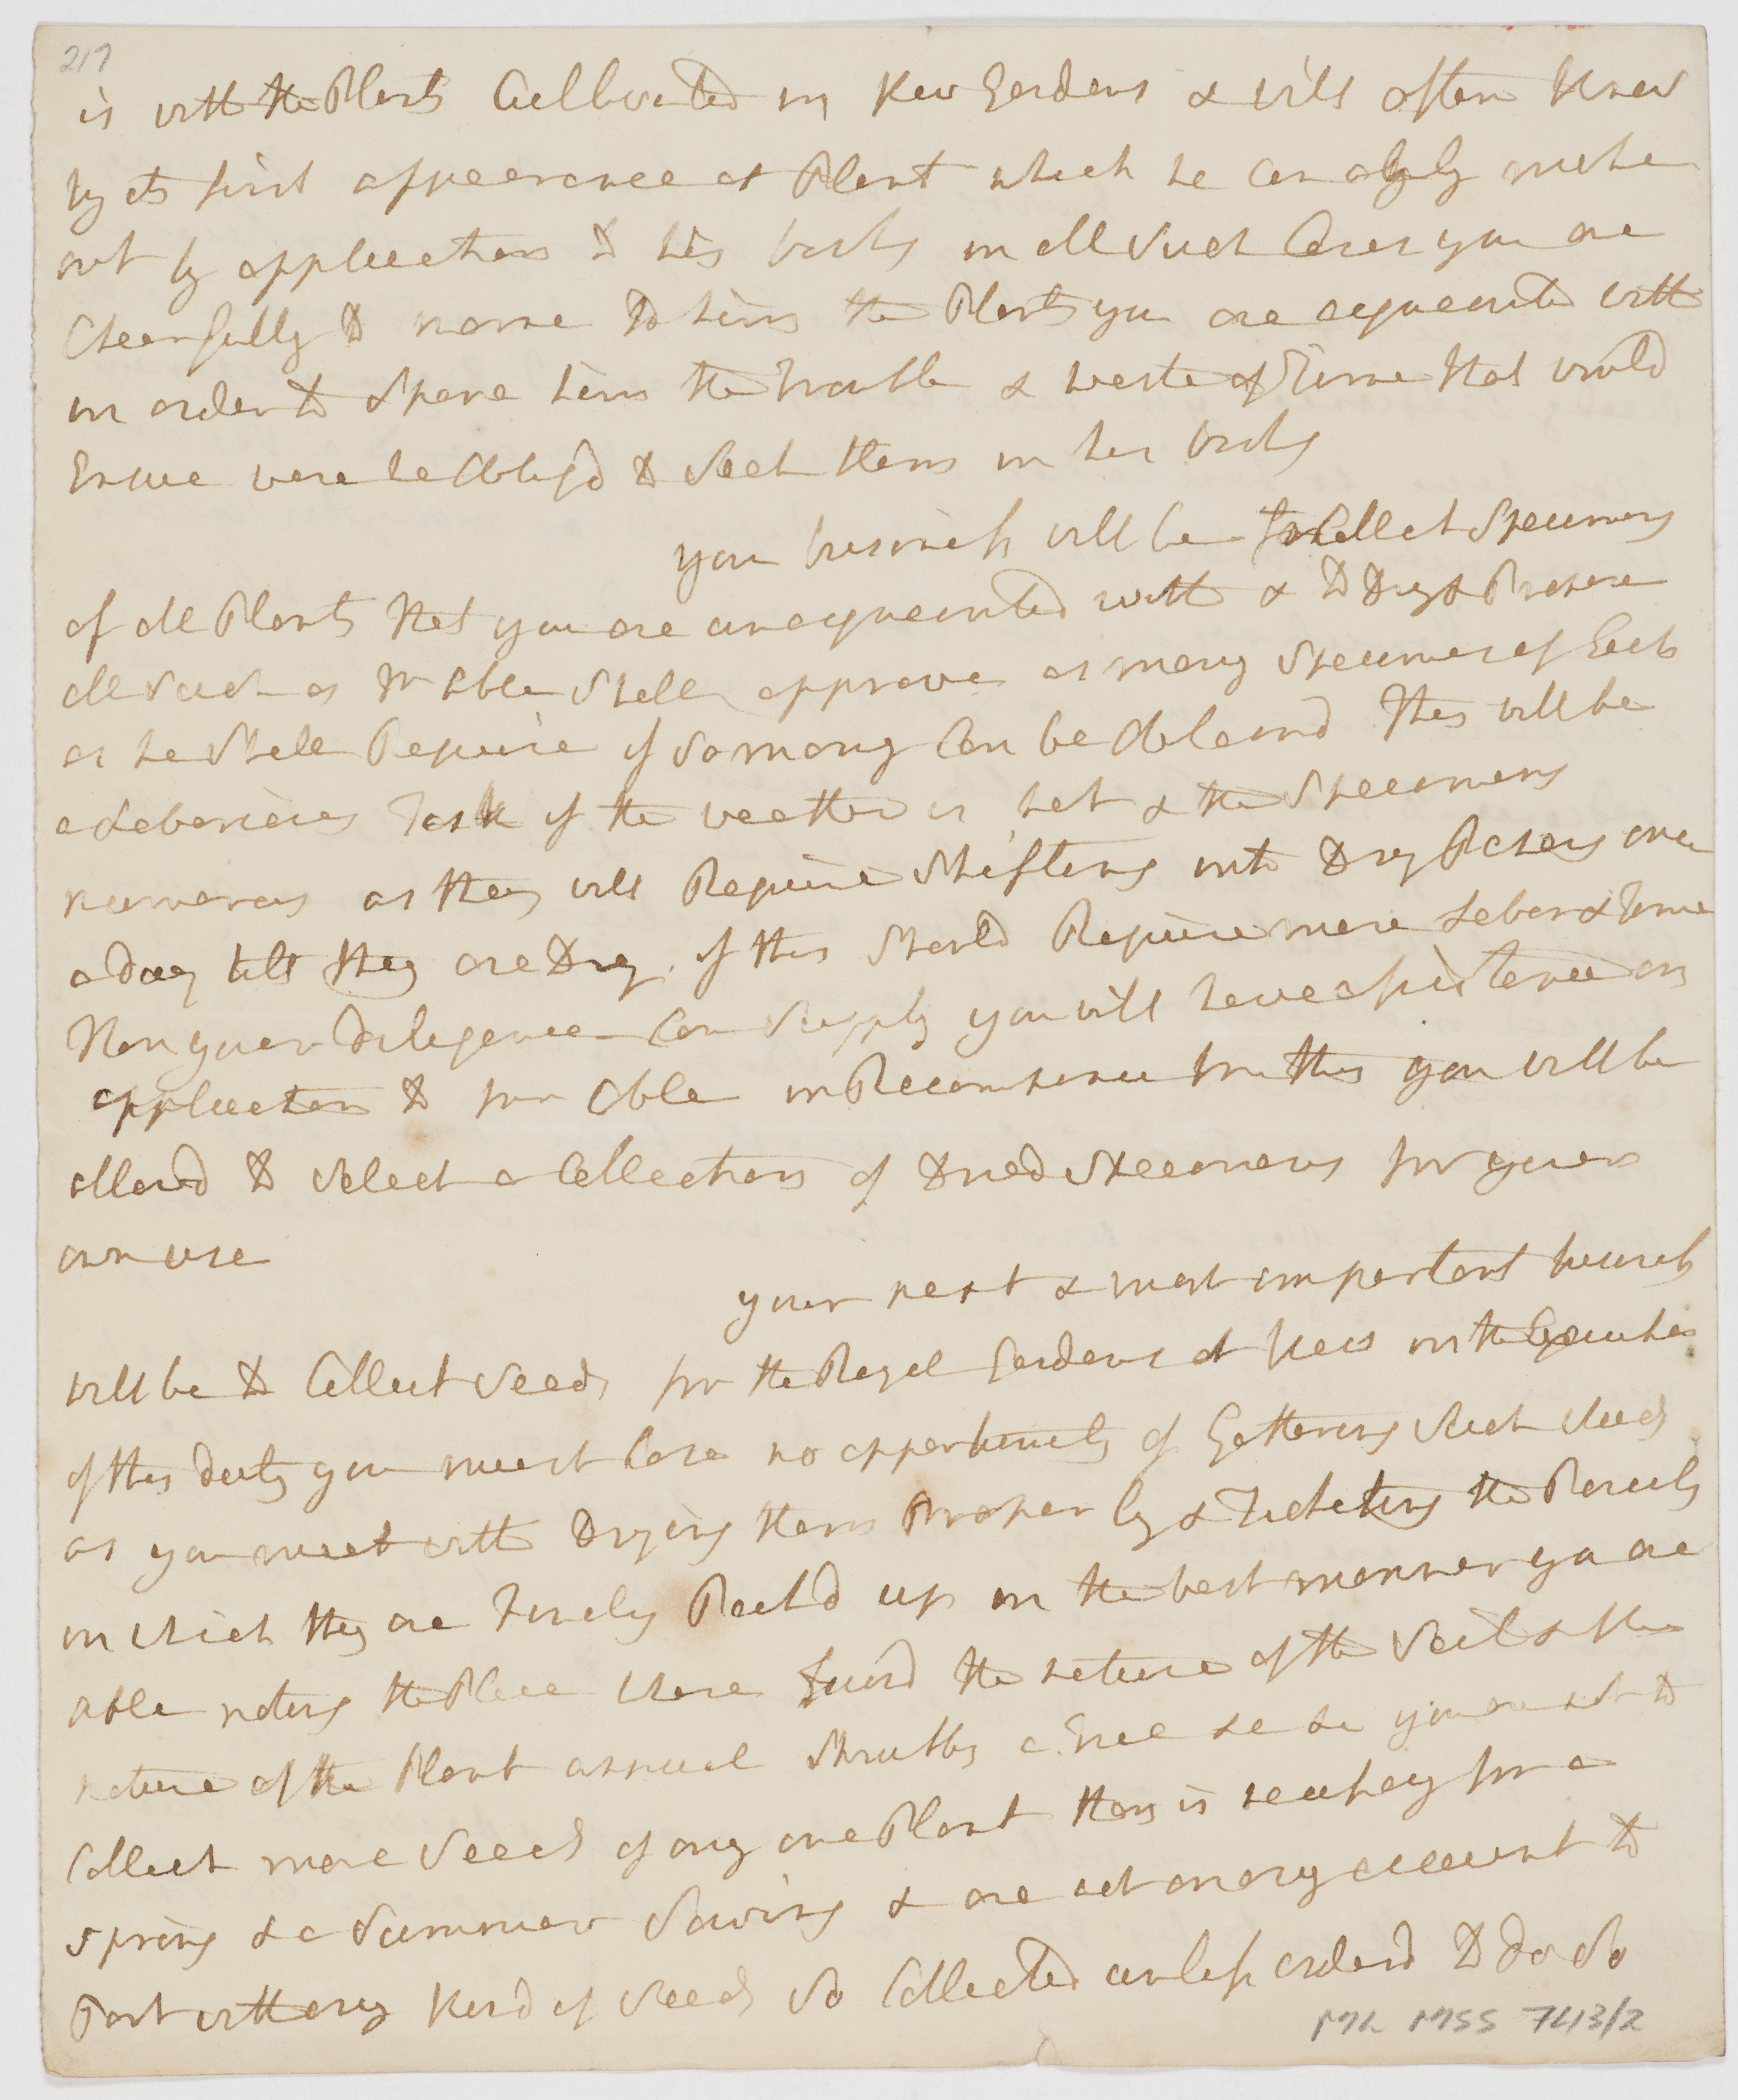 217
is with the Plants Cultivated in Kew Gardens & will often Know
by its first appearance a Plant which he can only make
out by application to his books in all such Cases you are
Chearfully to name to him the Plants you are acquainted with
in order to spare him the trouble & waste of Time that would
Ensue were he Obligd to seek them in his books
your business will be to Collect Specimens
of all Plants that you are unacquainted with & to Dry & Preserve
all such as Mr Able shall approve as many Specimens of Each
as he shall Require if so many Can be Obtaind This will be
a Laborious Task if the weather is hot & the Specimens
numerous as they will Require Shifting into Dry Papers once
a day till they are Dry. if this should Require more Labor & Time
than your Diligence Can Supply you will have assistance on
application to for Able in Recompence for this you will be
allowd to select a Collection of Dried Specimens for your
own use
your next & most important business
will be to Collect Seeds for the Royal Gardens at Kew in the Exercise
of this duty you must Lose no opportunity of Gathering such seeds
as you meet with Drying them Properly & Ticketing the Parcels
in which they are Finely Packd up in the best manner you are
able noting the Place where found the nature of the Soil & the
nature of the Plant annual Shrubby a Tree &c &c you are not to
Collect more Seeds of any one Plant than is necessary for a
spring & a Summer Sowing & are not on any account to
Part with any Kind of Seeds so Collected unless orderd to do so
ML MSS 743/2